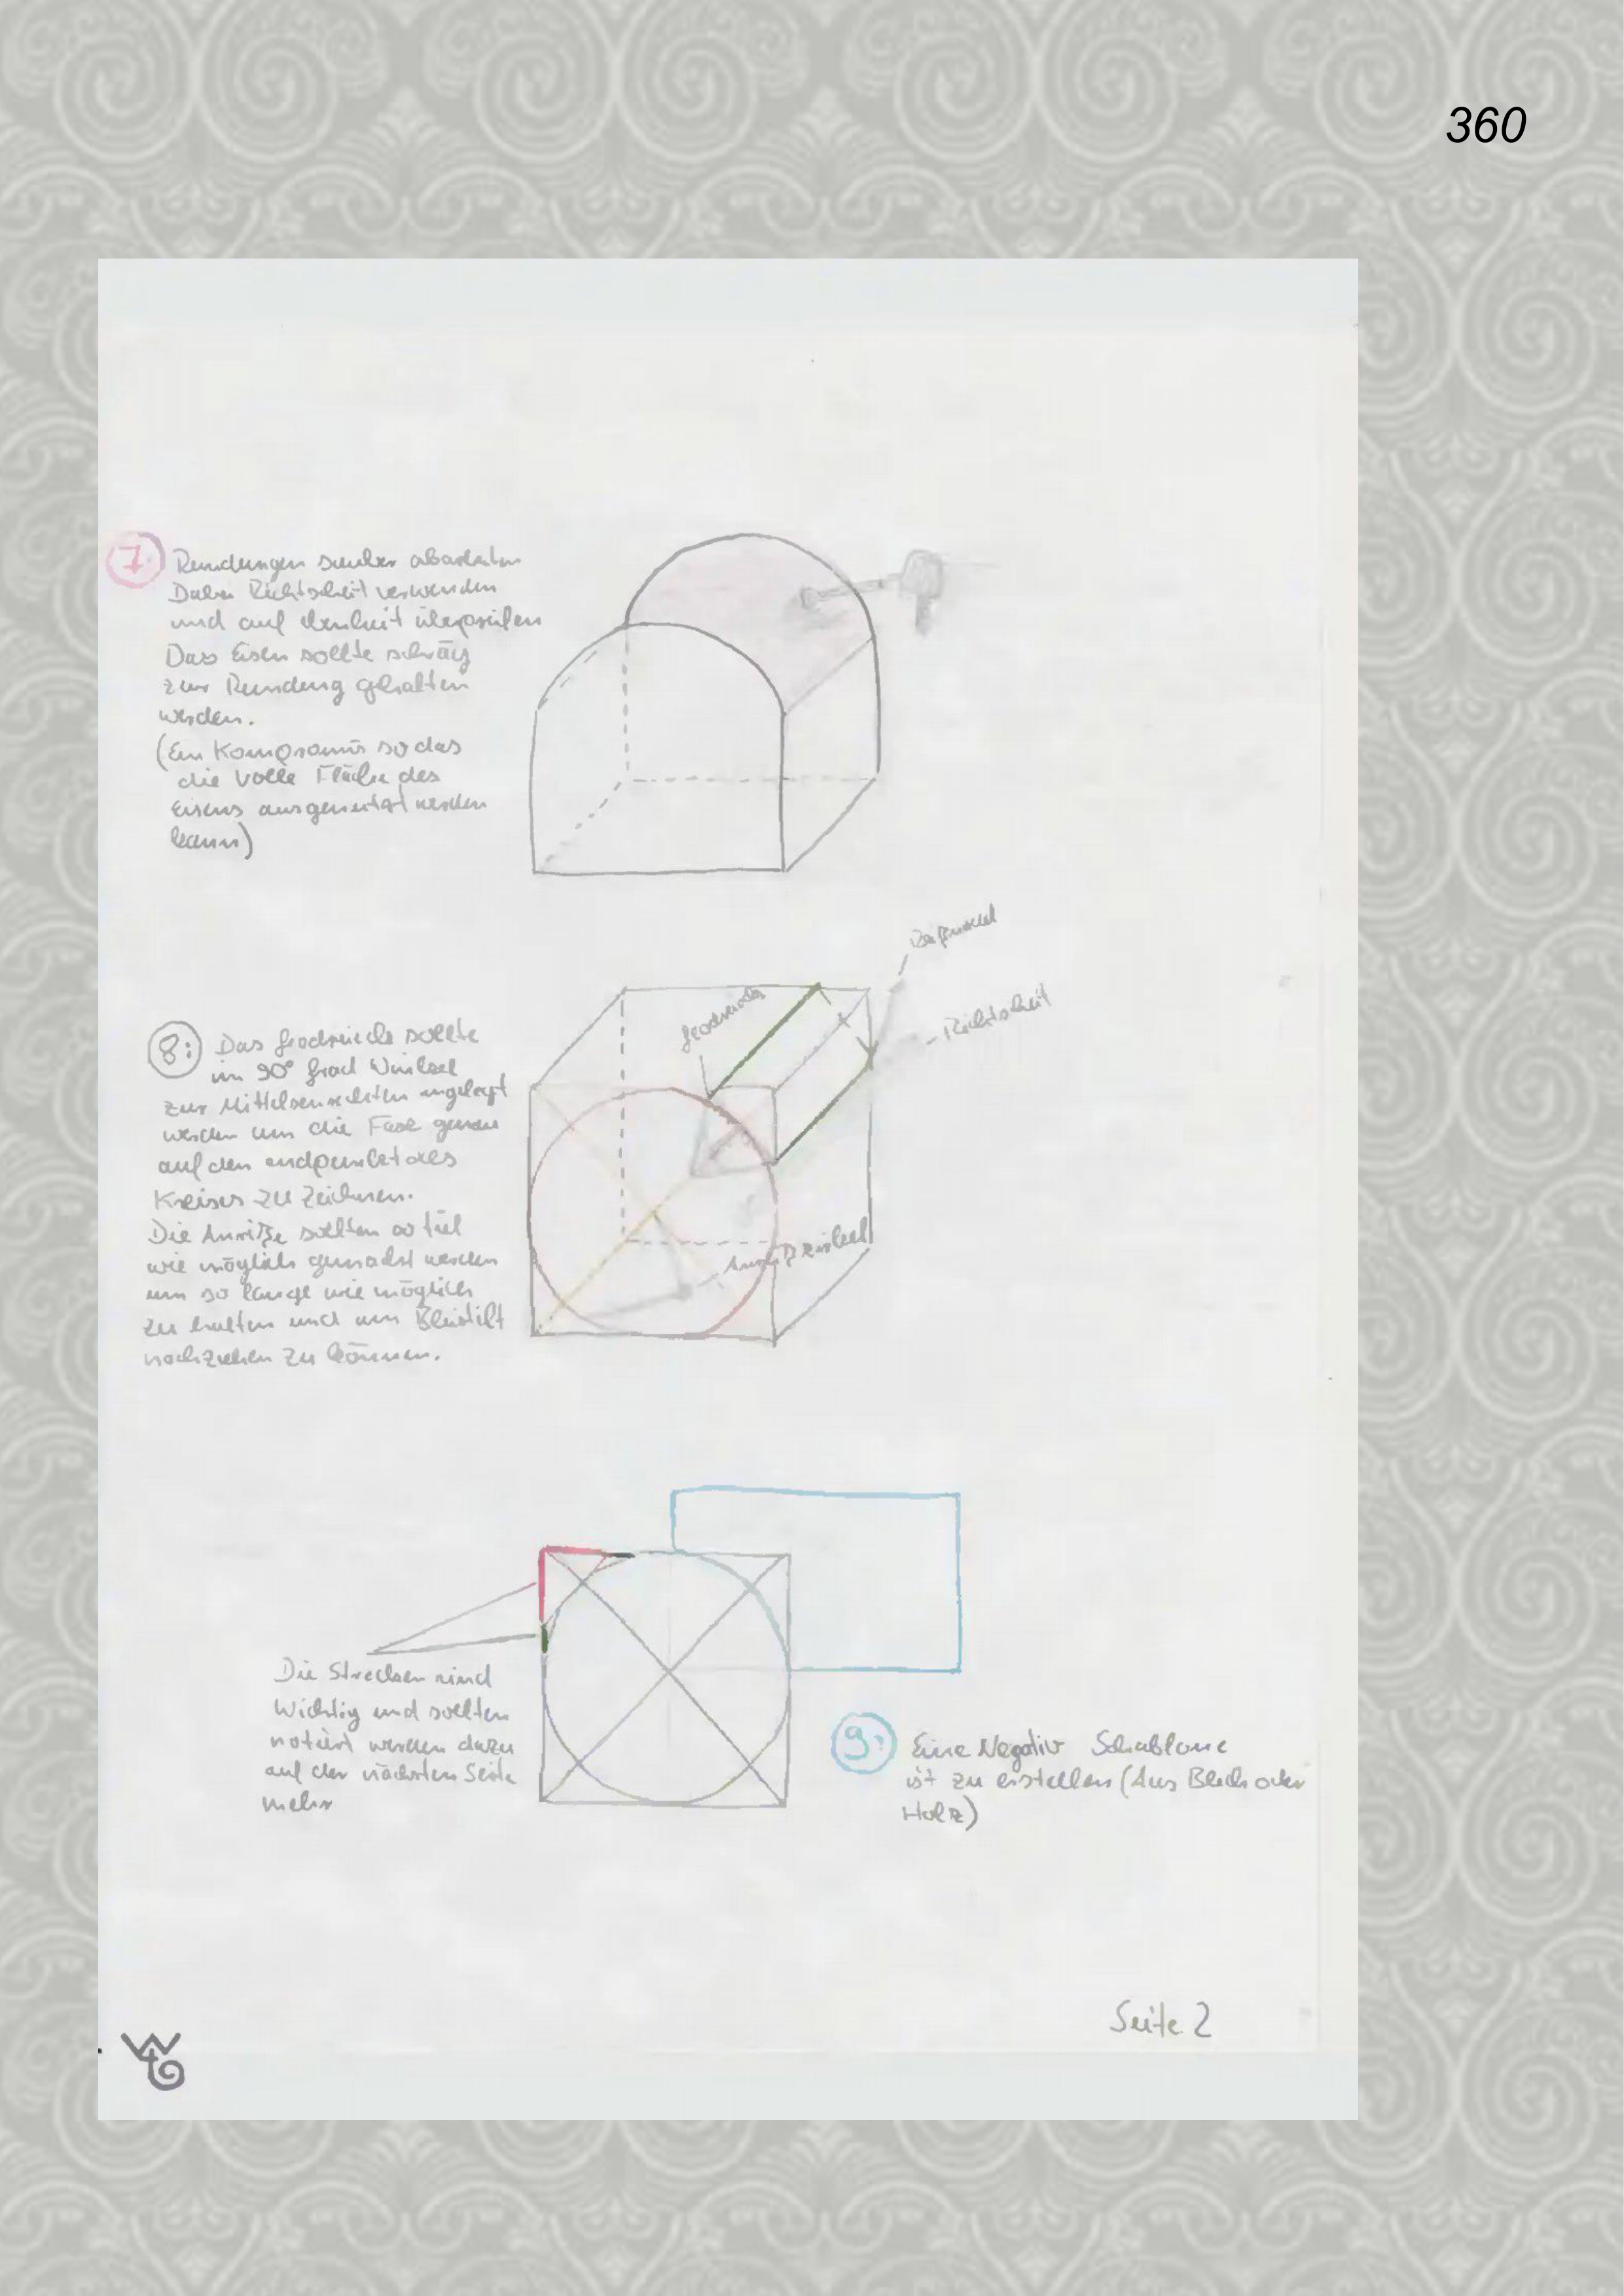 360
7. Rundungen sauber abarbeiten
Dabei Richtscheit verwenden
und auf Ebenheit überprüfen
Das Eisen sollte schräg
zur Rundung gehalten
werden.
(Ein Kompromis so das
die volle Fläche des
Eisens ausgenutzt werden
kann)
Reißnadel
Geodreieck
- Richtscheit
8: Das Geodreieck sollte
im 90° Grad Winkel
zur Mittelsenkrechten angelegt
werden um die Fase genau
auf den endpunkt des
Kreises zu zeichnen.
Die Anriße sollten so tief
wie möglich gemacht werden
um so lange wie möglich
zu halten und um Bleistift
nachziehen zu können.
Die Strecken sind
Wichtig und sollten
notiert werden dazu
auf der nächsten Seite
mehr
9. Eine Negativ Schablone
ist zu erstellen (Aus Blech oder
Holz)
Seite 2